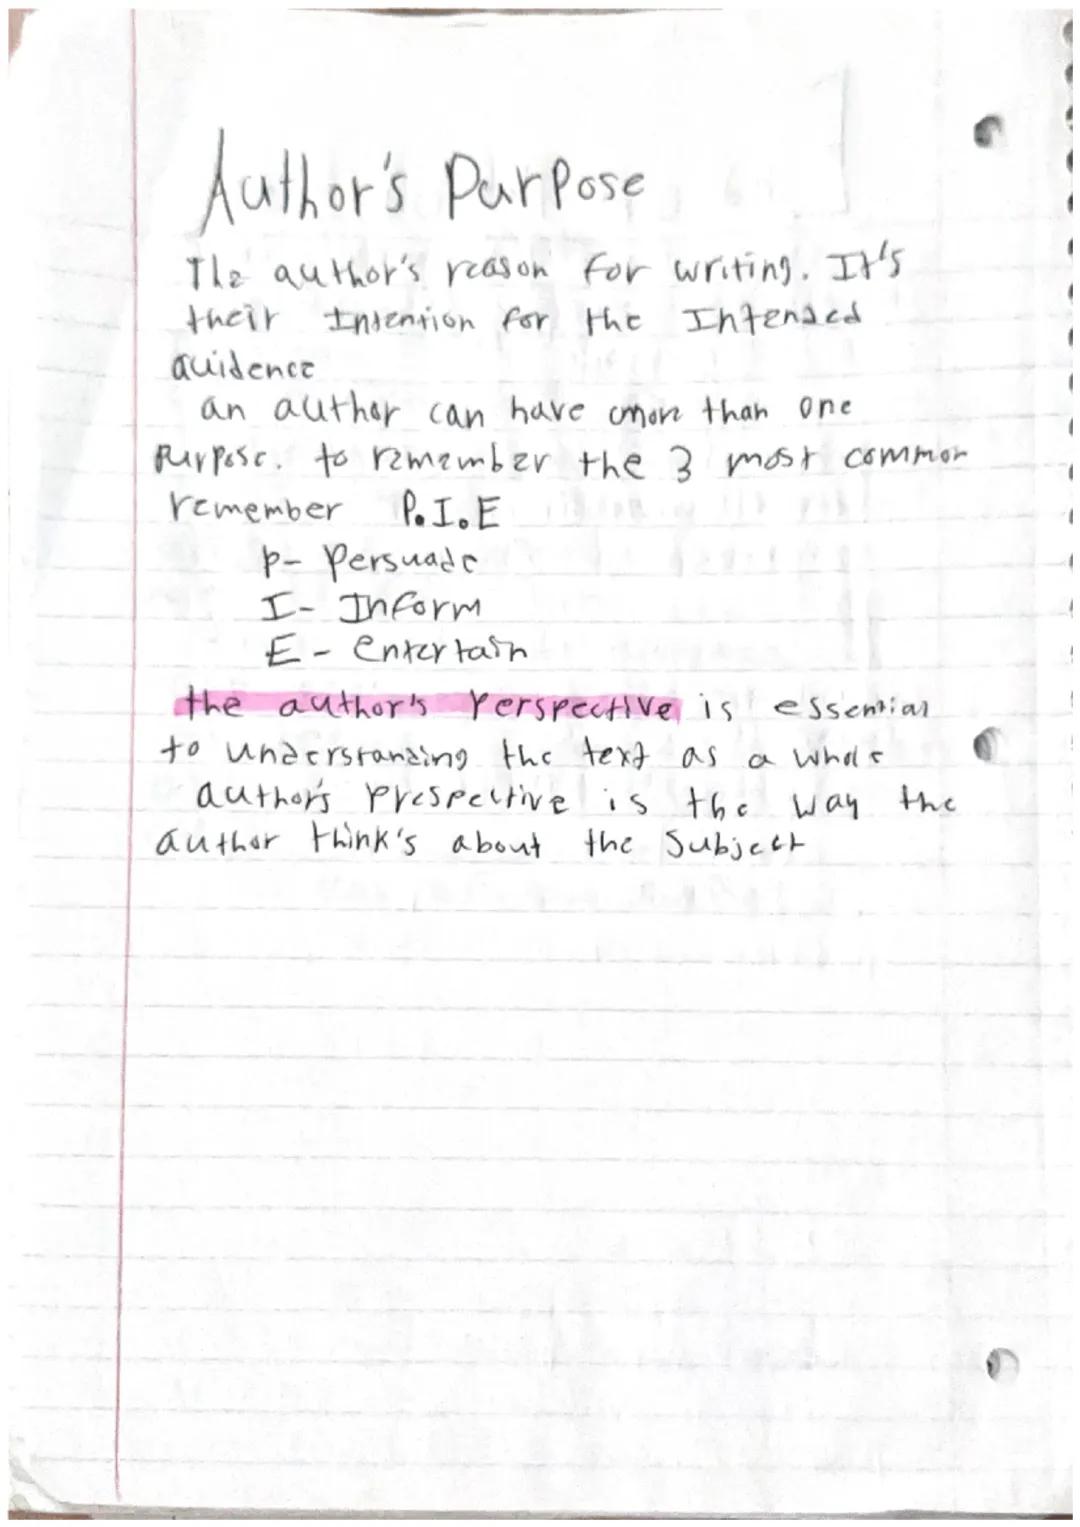 Author's Purpose
The author's reason for writing. It's
their Intention for the Intended
auidence
an author can have more than one
Purpose. to remember the 3 most common
remember P.I.E
P- Persuade
I- Inform
E- entertain
the author's Perspective is essential
to understanding the text as a whole
author's prespective is the way the
author think's about the Subject